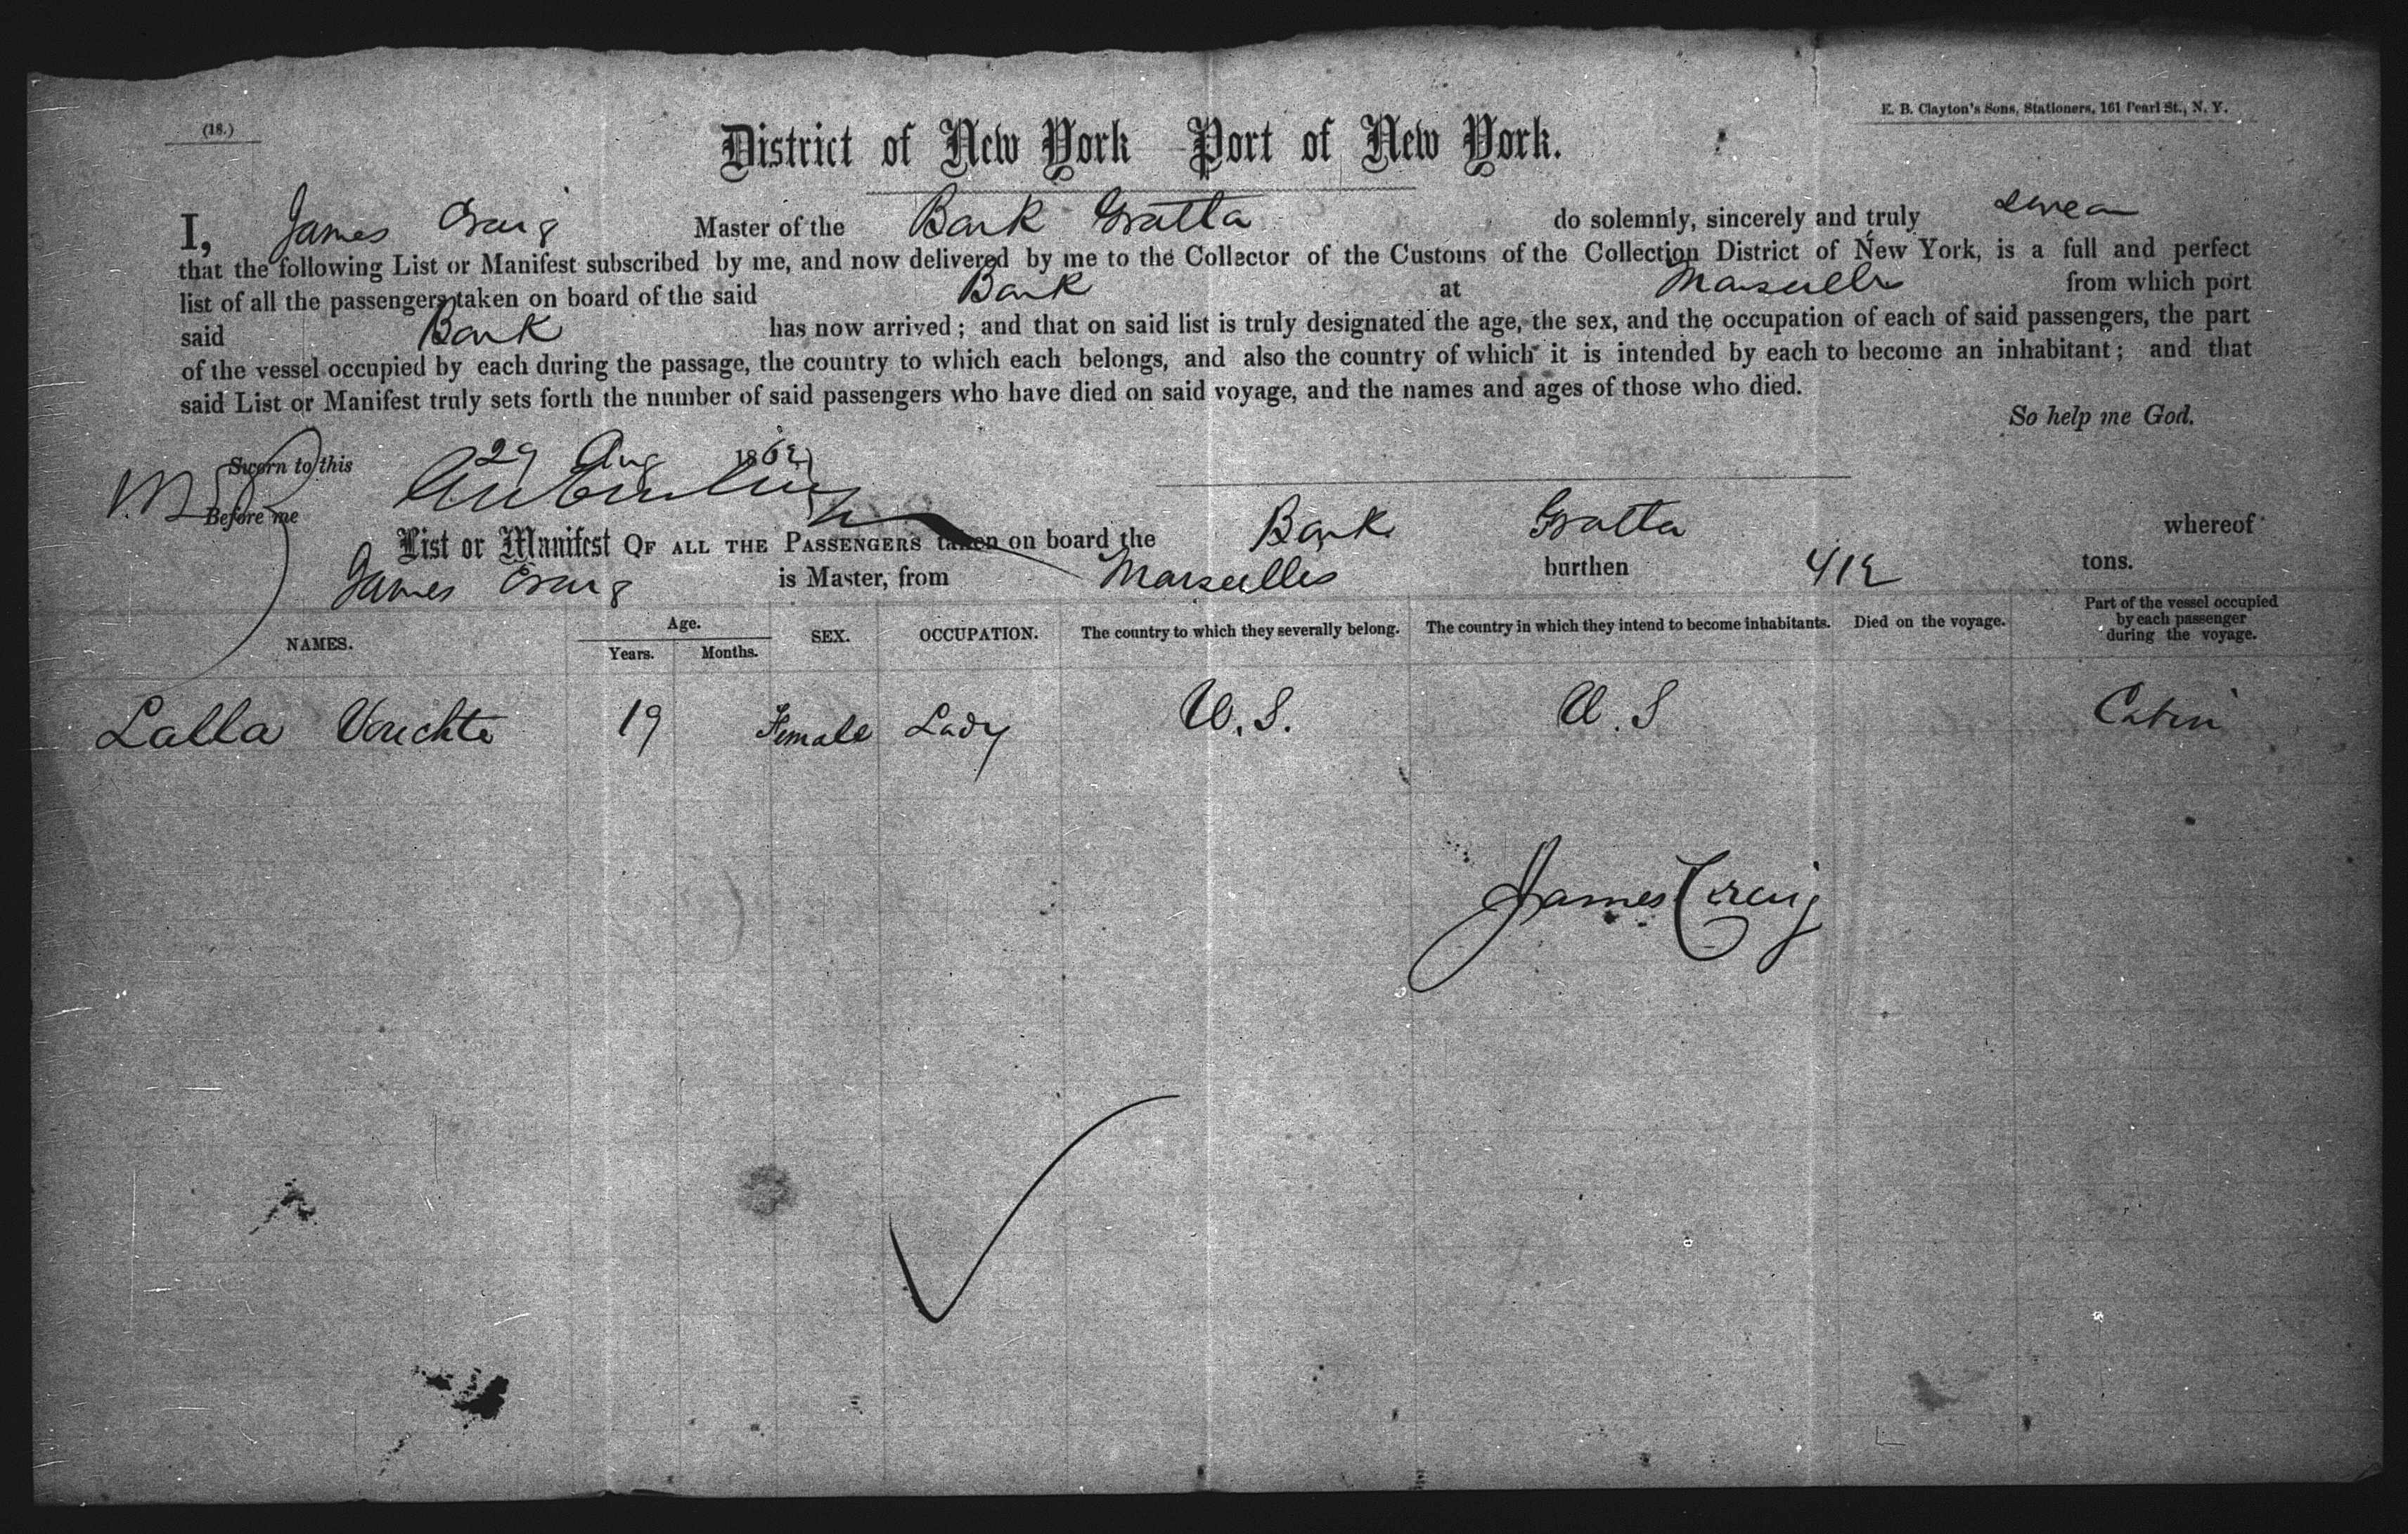 (18.)
E. B. Clayton's Sons, Stationers, 161 Pearl St., N. Y.
District of New York Port of New York.
I, James Craig Master of the Bark Gratta do solemnly, sincerely and truly swear
that the following List or Manifest subscribed by me, and now delivered by me to the Collector of the Customs of the Collection District of New York, is a full and perfect
list of all the passengers taken on board of the said Bark at Marseilles from which port
said Bark has now arrived; and that on said list is truly designated the age, the sex, and the occupation of each of said passengers, the part
of the vessel occupied by each during the passage, the country to which each belongs, and also the country of which it is intended by each to become an inhabitant; and that
said List or Manifest truly sets forth the number of said passengers who have died on said voyage, and the names and ages of those who died.
So help me God.
Sworn to this 29 Aug 186
Before me
List or Manifest OF ALL THE PASSENGERS taken on board the Bark Gratta whereof
James Craig is Master, from Marseilles burthen 412 tons.
NAMES. Age. Years. Months. SEX. OCCUPATION. The country to which they severally belong. The country in which they intend to become inhabitants. Died on the voyage. Part of the vessel occupied by each passenger during the voyage.
Lalla 19 Female Lady U.S. U.S Cabin
James Craig